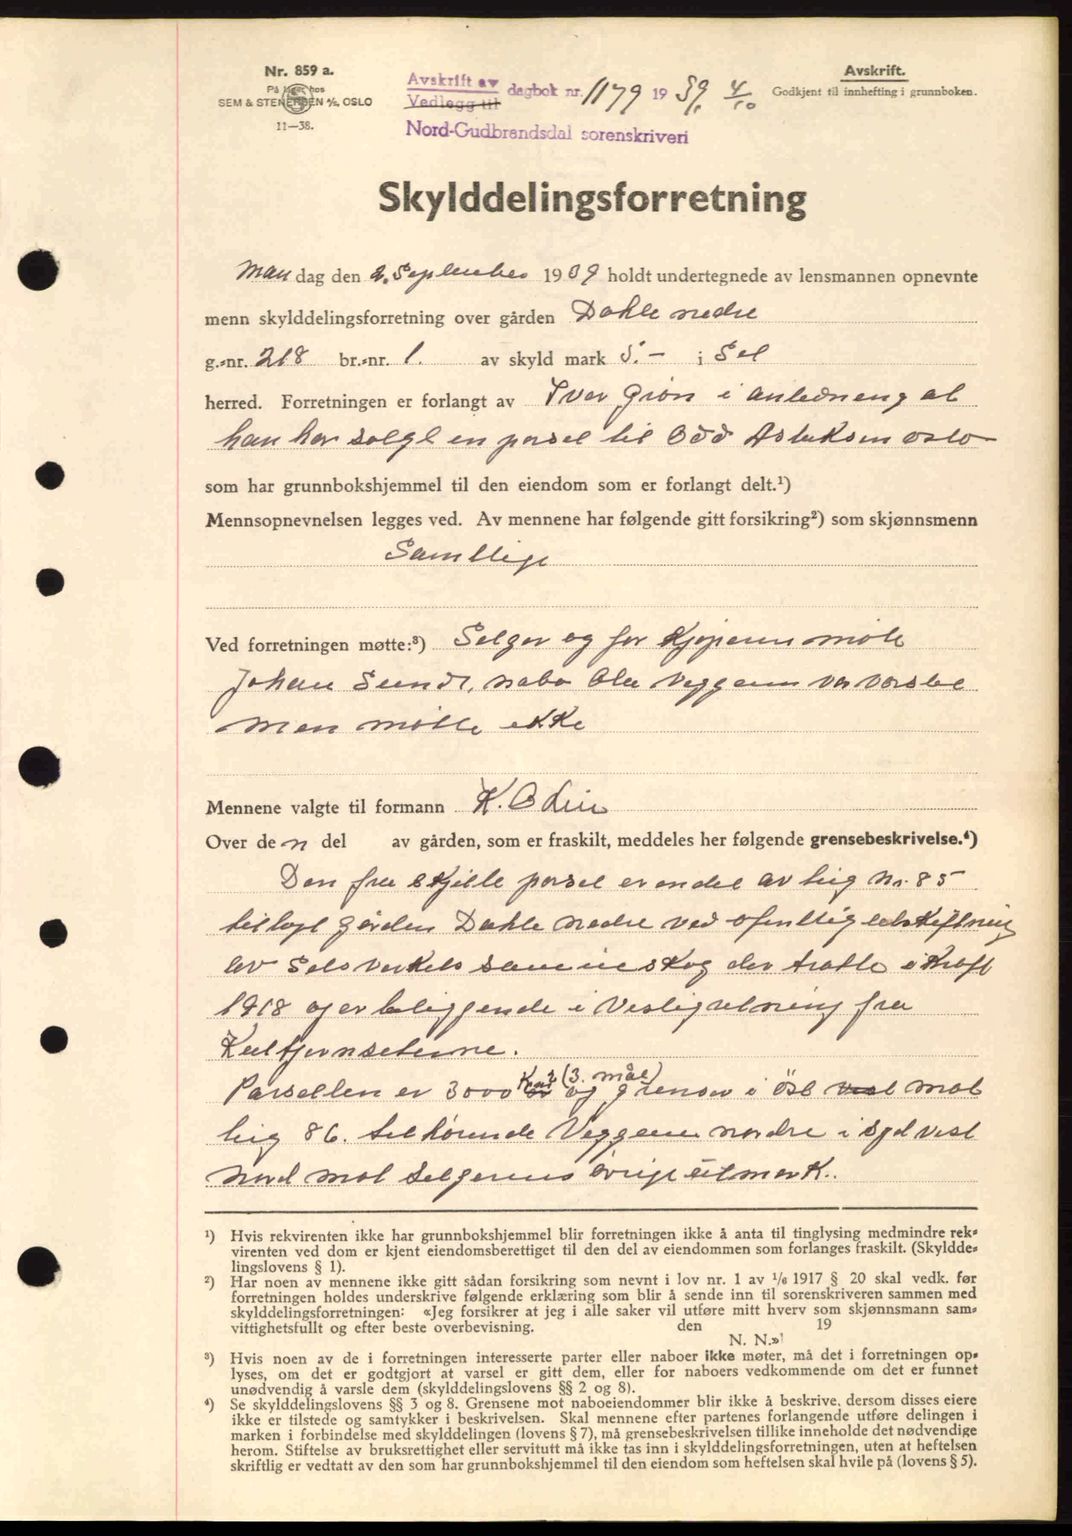 Nr. 859 a.
På lager hos
SEM & STENERSEN A/S, OSLO
11—38.
Avskrift av
Vedlegg til
dagbok nr. 1179 19 39, 4/10
Nord-Gudbrandsdal sorenskriveri
Avskrift.
Godkjent til innhefting i grunnboken.
Skylddelingsforretning
Man dag den 2. September 1939 holdt undertegnede av lensmannen opnevnte
menn skylddelingsforretning over gården Dahle nedre
g.-nr. 218 br.-nr. 1. av skyld mark 5.- i Sel
herred. Forretningen er forlangt av Iver Grøn i anledning at
han har solgt en parsel til Odd Oslo
som har grunnbokshjemmel til den eiendom som er forlangt delt.¹)
Mennsopnevnelsen legges ved. Av mennene har følgende gitt forsikring²) som skjønnsmenn
Samtlige
Ved forretningen møtte:³) Selger og for Kjøperen møtte
Johan Sund, nabo Ole Veggem var varslet
men møtte ikke
Mennene valgte til formann K. O Lie
Over de n del av gården, som er fraskilt, meddeles her følgende grensebeskrivelse.⁴)
Den fra skjilte parsel er en del av teig Nr. 85
tillagt gården Dahle nedre ved ofentlig utskiftning
av Selsverkets sameieskog der tratte i Kraft
1918 og er beliggende i Vestlig retning fra
Kultjernseterne.
Parsellen er 3000 Km² (3. mål) og grenser i öst vest mot
teig 86. tilhørende Veggem nordre i syd vest
nord mot selgerens övrige utmark.
¹) Hvis rekvirenten ikke har grunnbokshjemmel blir forretningen ikke å anta til tinglysing medmindre rek-
virenten ved dom er kjent eiendomsberettiget til den del av eiendommen som forlanges fraskilt. (Skyldde-
lingslovens § 1).
²) Har noen av mennene ikke gitt sådan forsikring som nevnt i lov nr. 1 av 1/6 1917 § 20 skal vedk. før
forretningen holdes underskrive følgende erklæring som blir å sende inn til sorenskriveren sammen med
skylddelingsforretningen: «Jeg forsikrer at jeg i alle saker vil utføre mitt hverv som skjønnsmann sam-
vittighetsfullt og efter beste overbevisning. den 19
N. N.»
³) Hvis noen av de i forretningen interesserte parter eller naboer ikke møter, må det i forretningen op-
lyses, om det er godtgjort at varsel er gitt dem, eller for naboers vedkommende om det er funnet
unødvendig å varsle dem (skylddelingslovens §§ 2 og 8).
⁴) Se skylddelingslovens §§ 3 og 8. Grensene mot naboeiendommer blir ikke å beskrive, dersom disses eiere
ikke er tilstede og samtykker i beskrivelsen. Skal mennene efter partenes forlangende utføre delingen i
marken i forbindelse med skylddelingen (lovens § 7), må grensebeskrivelsen tillike inneholde det nødvendige
herom. Stiftelse av bruksrettighet eller servitutt må ikke tas inn i skylddelingsforretningen, uten at heftelsen
skriftlig er vedtatt av den som har grunnbokshjemmel til den eiendom som heftelsen skal hvile på (lovens § 5).